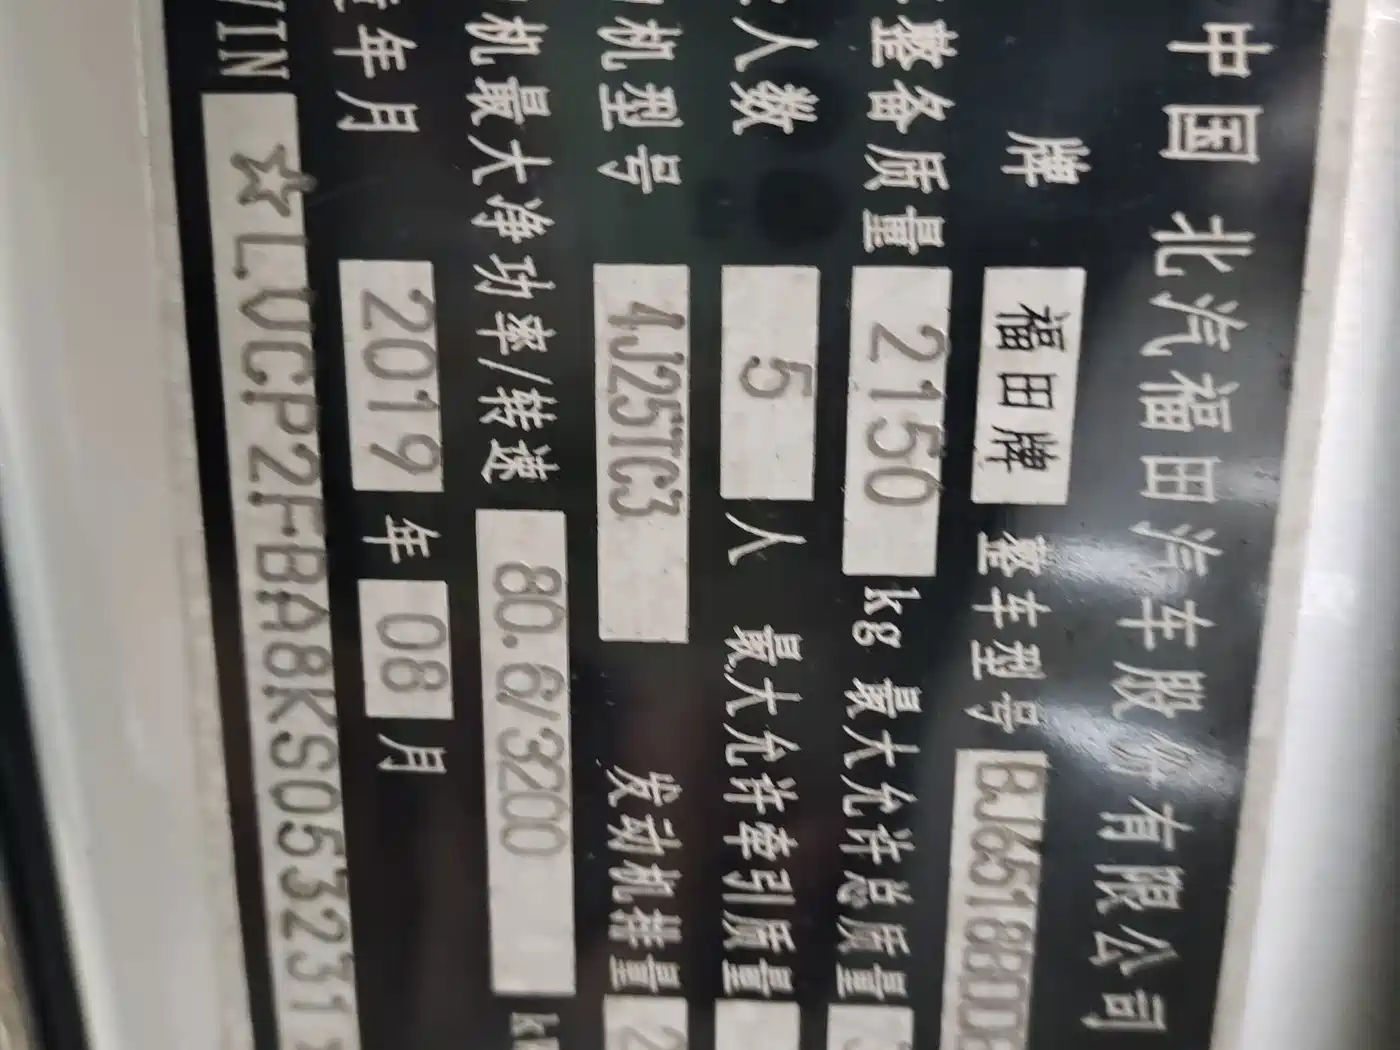 中国 北汽福田汽车股份有限公司
牌 福田牌 整车型号 BJ6518BD
整备质量 2150 kg 最大允许总质量
人数 5 人 最大允许牵引质量
机型号 4J25TC3 发动机排量 2
机最大净功率/转速 80.6/3200 kW
年月 2019 年 08 月
VIN ☆LVCP2FBA8KS053231